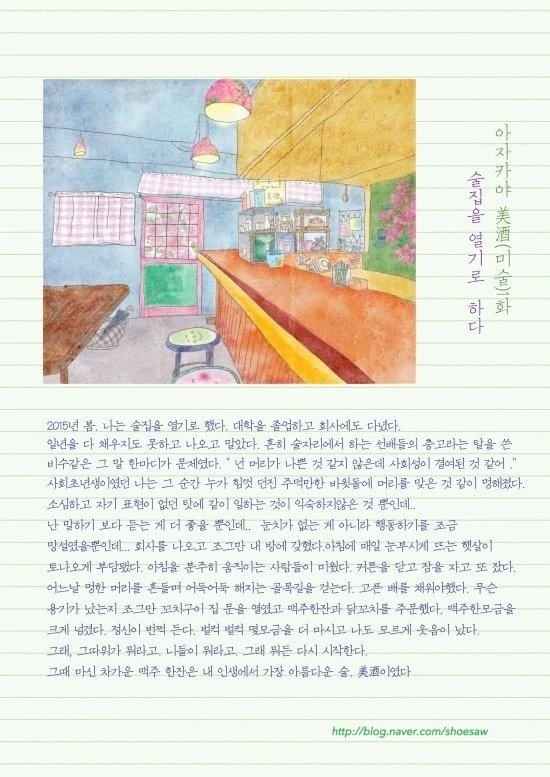 아자카야 美酒(미술)1화
술집을 열기로 하다
2015년 봄. 나는 술집을 열기로 했다. 대학을 졸업하고 회사에도 다녔다.
일년을 다 채우지도 못하고 나오고 말았다. 흔히 술자리에서 하는 선배들의 충고라는 탈을 쓴
비수같은 그 말 한마디가 문제였다. " 넌 머리가 나쁜 것 같지 않은데 사회성이 결여된 것 같어 ."
사회초년생이였던 나는 그 순간 누가 힘껏 던진 주먹만한 바윗돌에 머리를 맞은 것 같이 멍해졌다.
소심하고 자기 표현이 없던 탓에 같이 일하는 것이 익숙하지않은 것 뿐인데..
난 말하기 보다 듣는 게 더 좋을 뿐인데.. 눈치가 없는 게 아니라 행동하기를 조금
망설였을뿐인데... 회사를 나오고 조그만 내 방에 갖혔다.아침에 매일 눈부시게 뜨는 햇살이
토나오게 부담됐다. 아침을 분주히 움직이는 사람들이 미웠다. 커튼을 닫고 잠을 자고 또 잤다.
어느날 멍한 머리를 흔들며 어둑어둑 해지는 골목길을 걷는다. 고픈 배를 채워야했다. 무슨
용기가 났는지 조그만 꼬치구이 집 문을 열였고 맥주한잔과 닭꼬치를 주문했다. 맥주한모금을
크게 넘겼다. 정신이 번쩍 든다. 벌컥 벌컥 몇모금을 더 마시고 나도 모르게 웃음이 났다.
그래, 그따위가 뭐라고. 니들이 뭐라고. 그래 뭐든 다시 시작한다.
그때 마신 차가운 맥주 한잔은 내 인생에서 가장 아름다운 술. 美酒이였다
http://blog.naver.com/shoesaw